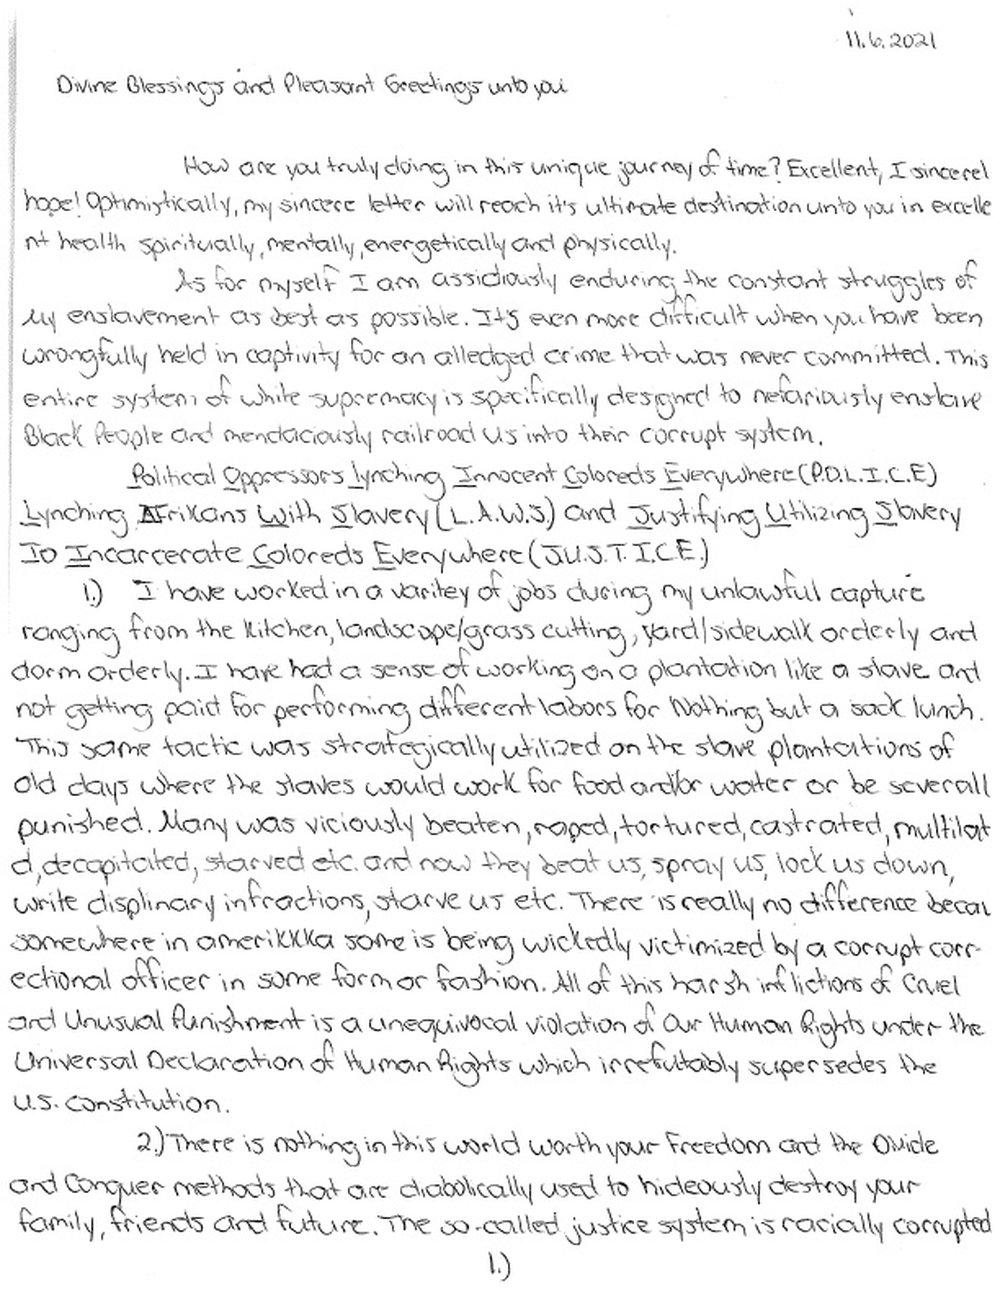 11.6.2021
Divine Blessings and Pleasant Greetings unto you
How are you truly doing in this unique journey of time? Excellent, I sincerel
hope! Optimistically, my sincere letter will reach it's ultimate destination unto you in excelle
nt health spiritually, mentally, energetically and physically.
As for myself I am assidiously enduring the constant struggles of
my enslavement as best as possible. It's even more difficult when you have been
wrongfully held in captivity for an alledged crime that was never committed. This
entire system of white supremacy is specifically designed to nefariously enslave
Black People and mendaciously railroad us into their corrupt system.
Political Oppressors Lynching Innocent Coloreds Everywhere (P.O.L.I.C.E)
Lynching Afrikans With Slavery (L.A.W.S) and Justifying Utilizing Slavery
To Incarcerate Coloreds Everywhere (J.U.S.T.I.C.E.)
1.) I have worked in a varitey of jobs during my unlawful capture
ranging from the kitchen, landscape/grass cutting, yard/sidewalk orderly and
dorm orderly. I have had a sense of working on a plantation like a slave and
not getting paid for performing different labors for Nothing but a sack lunch.
This same tactic was strategically utilized on the slave plantations of
old days where the slaves would work for food and/or water or be severall
punished. Many was viciously beaten, raped, tortured, castrated, multilat
d, decapitated, starved etc. and now they beat us, spray us, lock us down,
write displinary infractions, starve us etc. There is really no difference becau
somewhere in amerikkka some is being wickedly victimized by a corrupt corr-
ectional officer in some form or fashion. All of this harsh inflictions of Cruel
and Unusual Punishment is a unequivocal violation of Our Human Rights under the
Universal Declaration of Human Rights which irrefutably supersedes the
U.S. constitution.
2.) There is nothing in this world worth your Freedom and the Divide
and Conquer methods that are diabolically used to hideously destroy your
family, friends and future. The so-called justice system is racially corrupted
1.)